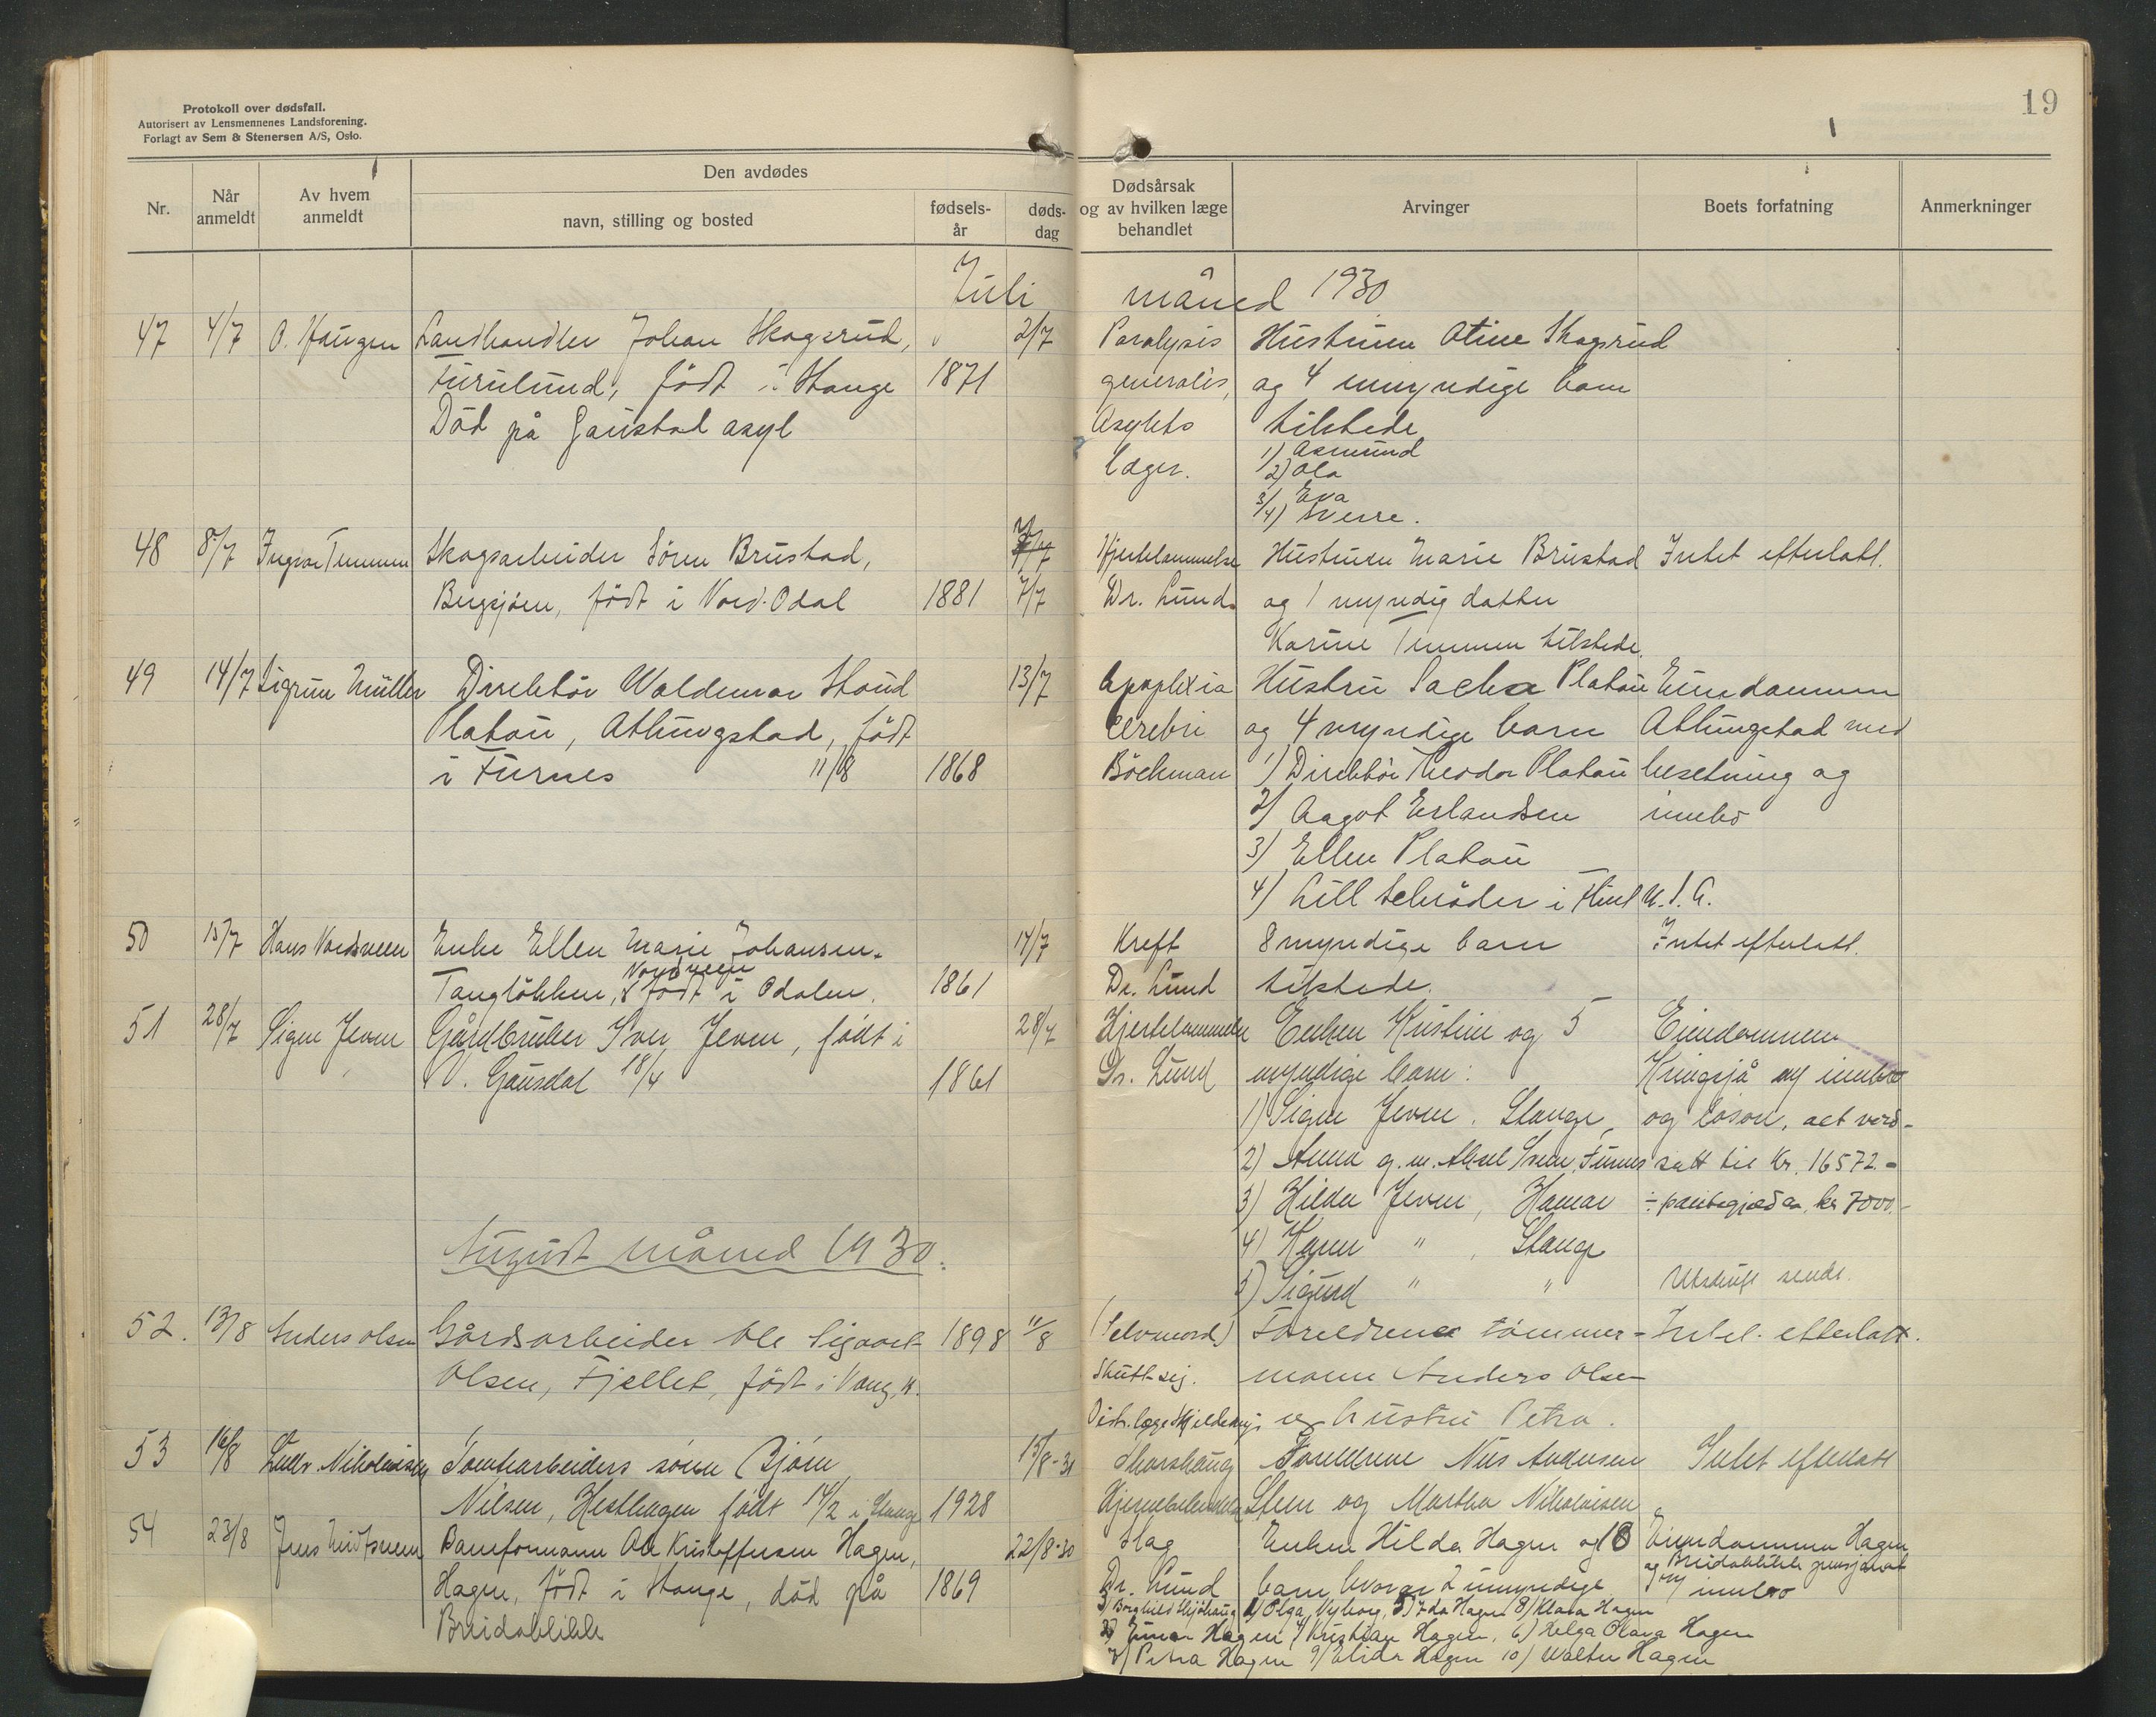 Protokoll over dødsfall.
Autorisert av Lensmennenes Landsforening.
Forlagt av Sem & Stenersen A/S, Oslo.
19
Nr.
Når anmeldt
Av hvem anmeldt
Den avdødes
navn, stilling og bosted
fødsels-år
døds-dag
Dødsårsak og av hvilken læge behandlet
Arvinger
Boets forfatning
Anmerkninger
Juli måned 1930
47 4/7 O. Haugen Landhandler Johan Skogsrud, 2/7 Paralysis Hustruen Otine Skogsrud
Furulund, födt i Stange 1871 generalis, og 4 umyndige barn
Död på Gaustad asyl Asylets tilstede
læger. 1) Asmund
2) Ola
3) Eva
4) Sverre.
48 8/7 Ingvar Temmen Skogsarbeider Sören Brustad, Hjertelammelse Hustruen Marie Brustad Intet efterlatt.
Bergsjöen, födt i Nord-Odal 1881 7/7 Dr. Lund. og 1 myndig datter
Karine Temmen tilstede.
49 14/7 Sigrun Müller Direktör Waldemar Stoud 13/7 Apoplexia Hustru Sacha Platou Eiendommen
Platou, Atlungstad, födt cerebri og 4 myndige barn Atlungstad med
i Furnes 11/8 1868 Böckman 1) Direktör Theodor Platou besetning og
2) Aagot Erlandsen innbo
3) Ellen Platou
4) Lill Schröder i Flint U.S.A.
50 15/7 Hans Nordsveen Enke Ellen Marie Johansen. 14/7 Kreft 8 myndige barn Intet efterlatt.
Nordsveen
Tangløkken, födt i Odalen. 1861 Dr. Lund tilstede.
51 28/7 Signe Jevne Gårdbruker Iver Jevne, födt i 28/7 Hjertelammelse Enken Kristine og 5 Eiendommen
V. Gausdal 18/4 1861 Dr. Lund myndige barn: Kringsjå m/ innbo
1) Signe Jevne, Stange, og lösöre, alt verd-
2) Anna g. m. Aksel Furnes satt til kr. 16572.-
3) Hilda Jevne, Hamar ÷ pantegjeld ca. kr 7000.-
4) Karen " , Stange
5) Sigurd " " Utskrift sendt.
August måned 1930.
52. 13/8 Anders Olsen Gårdsarbeider Ole Sigvart 1898 11/8 (Selvmord) Foreldrene tömmer- Intet efterlatt.
Olsen, Fjellet, födt i Vang, H. Skutt sig. mann Anders Olsen
Distr. læge og hustru Petra.
53 16/8 Ludv. Nikolaisen Tomtearbeiders sönn Björn 15/8-30 Foreldrene Nils Andersen Intet efterlatt
Nilsen, Hesthagen födt 14/2 i Stange 1928 Steen og Martha Nikolaisen
54 23/8 Jens Baneformann Ole Kristoffersen Hagen, 22/8-30 Slag Enken Hilda Hagen og 10 Eiendommen Hagen
og Breidablikk pensjonat
Hagen, födt i Stange, död på 1869 Dr. Lund barn hvorav 2 umyndige m/ innbo
Breidablikk
3) Borghild 4) Olga, Nyborg, 5) Ida Hagen 8) Klara Hagen
2) Einar Hagen 1) Kristian Hagen, 6) Helga Olava Hagen
7) Petra Hagen 9) Elida Hagen 10) Walter Hagen